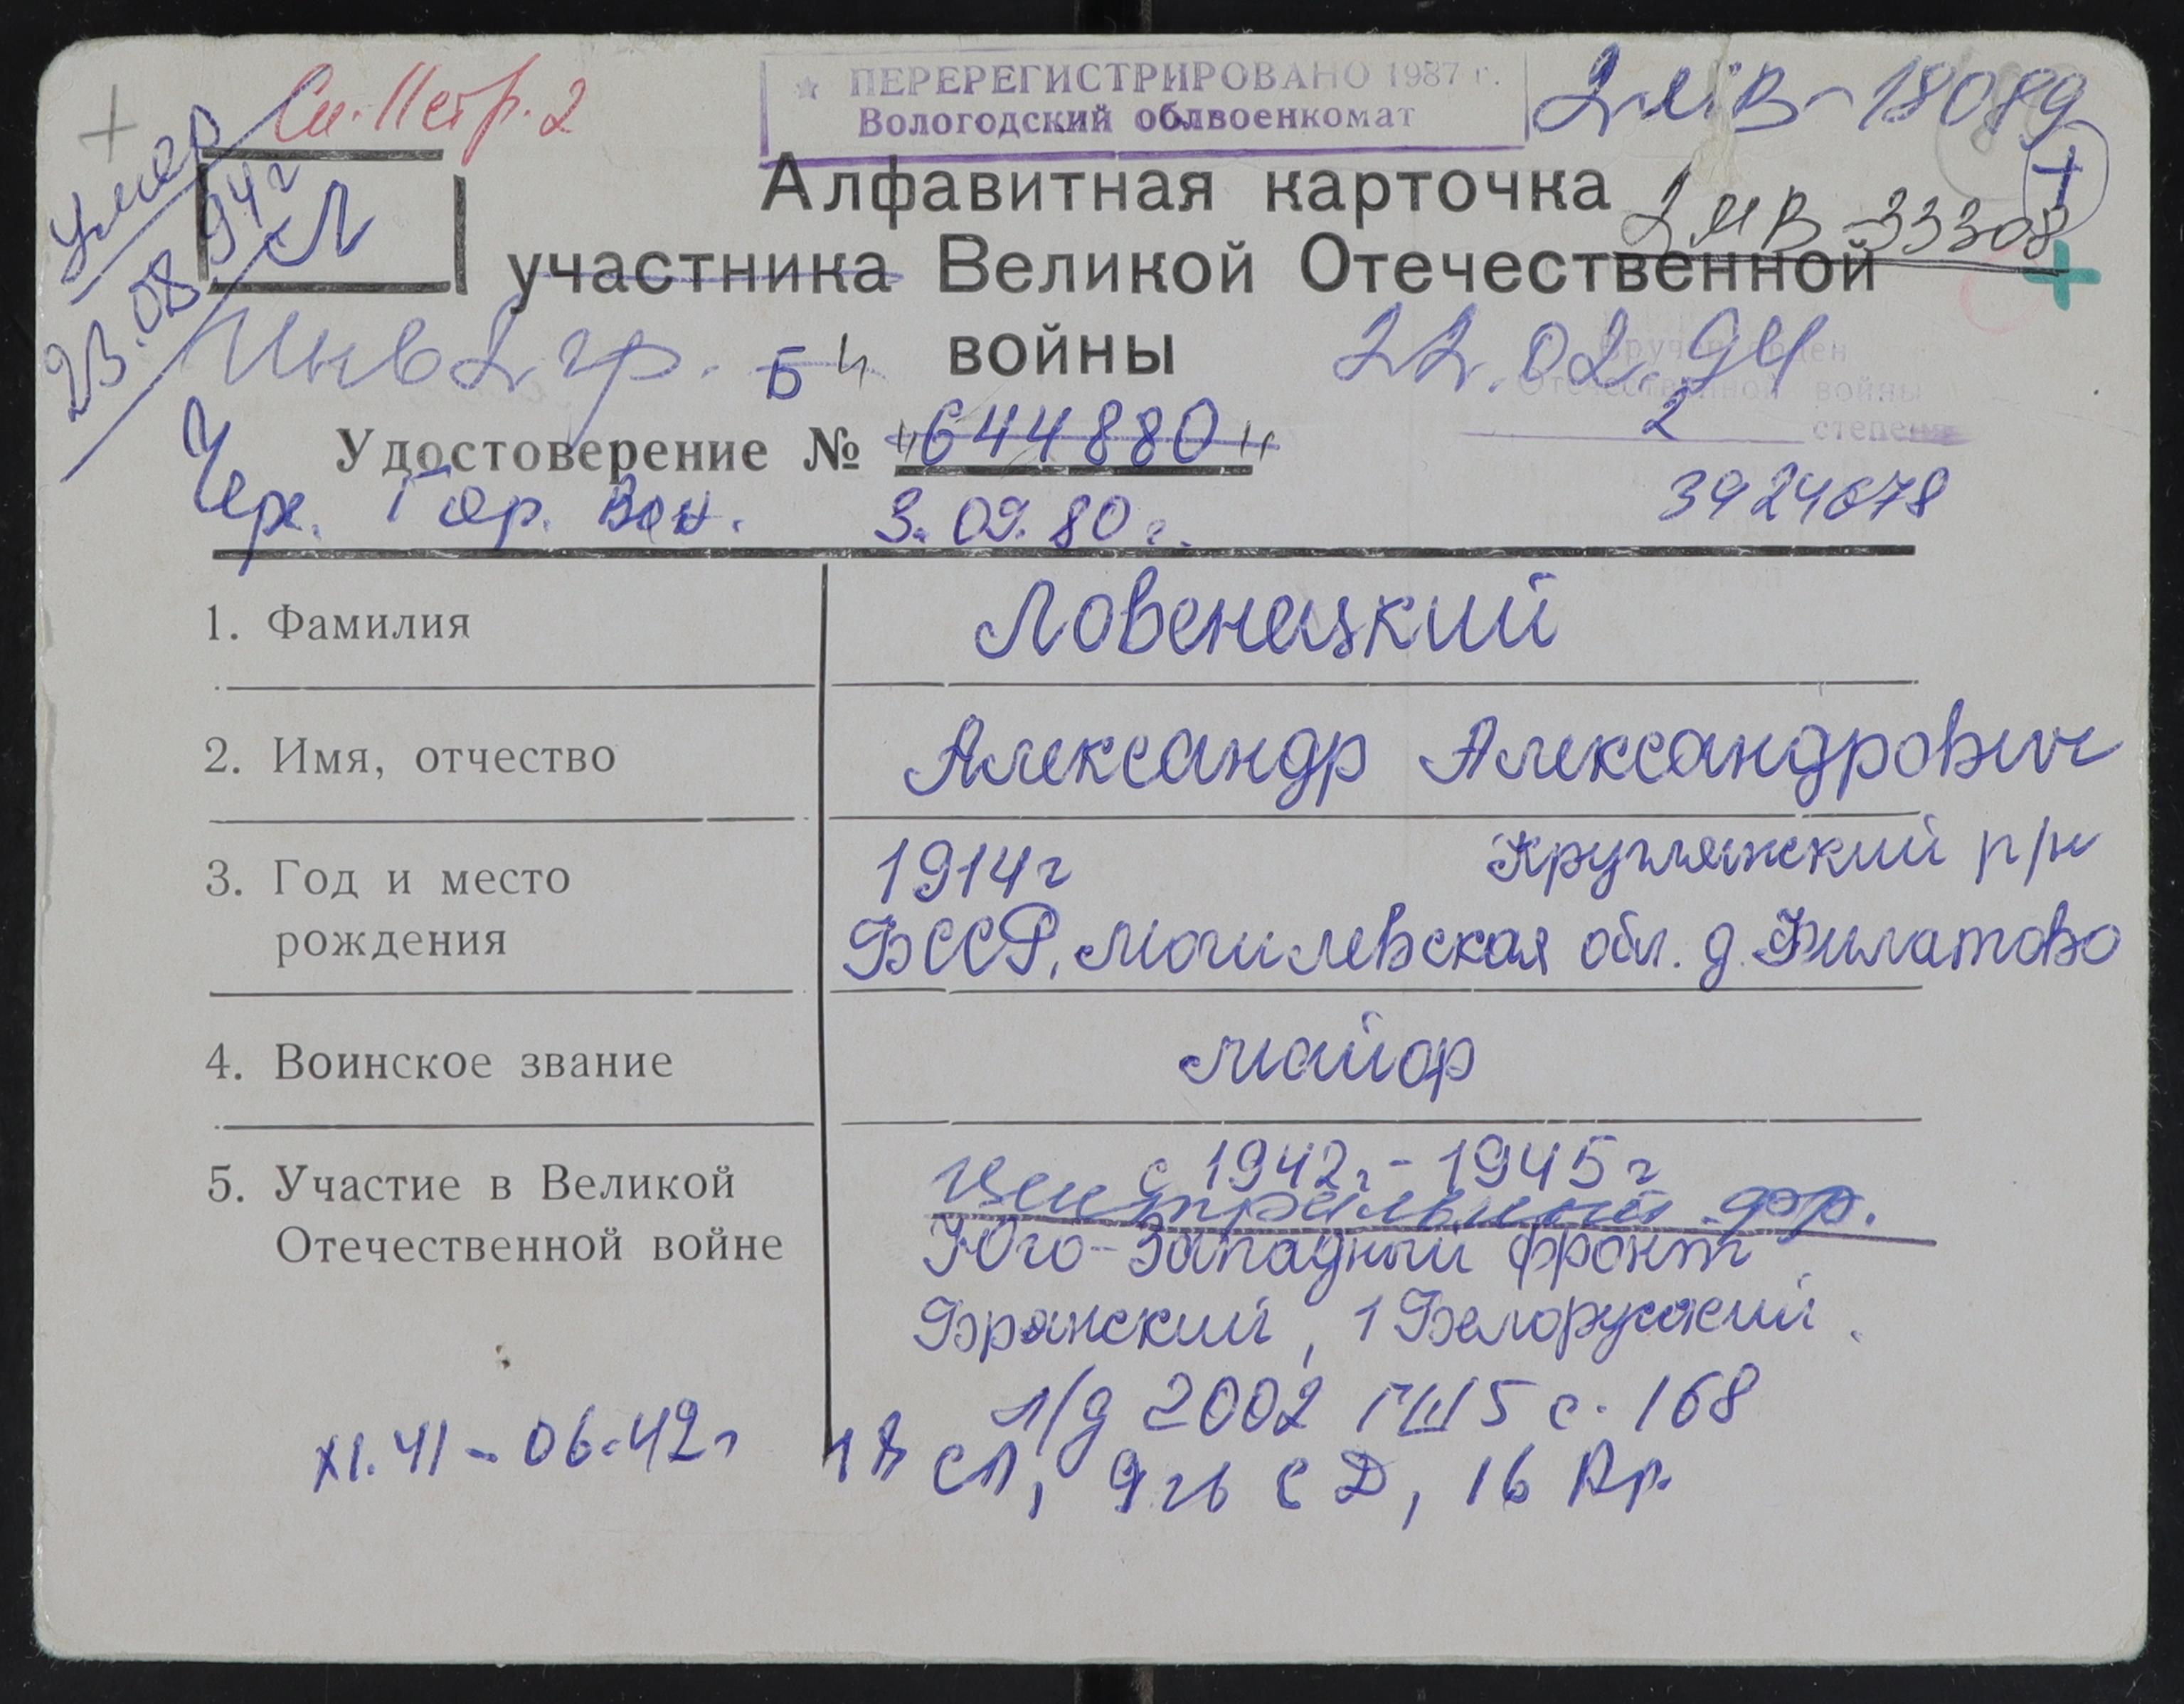 См. Петр. 2
ПЕРЕРЕГИСТРИРОВАНО 1987 г.
Вологодский облвоенкомат
2МВ-18089
Умер
23.08.94г
Л
Алфавитная карточка
2МВ-33308
участника Великой Отечественной
войны
Инв 2 гр. Б 4
22.02.94
Вручен орден
Отечественной войны
2 степени
Удостоверение № "644880"
Чер. Гор. Вен. 3.09.80 г.
3924678
1. Фамилия
Ловенецкий
2. Имя, отчество
Александр Александрович
3. Год и место рождения
1914г Круглянский р/н
БССР, Могилевская обл. д. Филатово
4. Воинское звание
майор
5. Участие в Великой Отечественной войне
с 1942г - 1945г
Центральный фр.
Юго-Западный фронт
Брянский, 1 Белорусский.
л/д 2002 ГШ 5 с. 168
XI.41 - 06.42г
СП, 9 гв СД, 16 Ар.